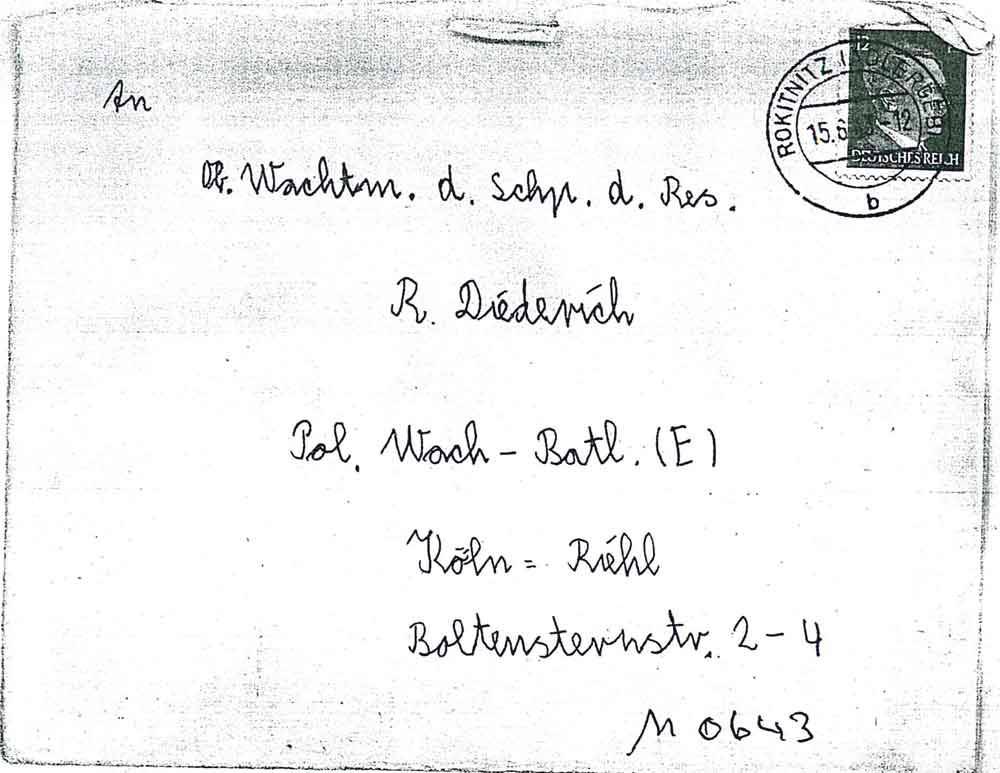 12
ROKITNITZ I. ADLERGEB
15.6. -12
DEUTSCHES REICH
b
An
Ob. Wachtm. d. Schp. d. Res.
R. Diederich
Pol. Wach - Batl. (E)
Köln = Riehl
Boltensternstr. 2 - 4
M 0643